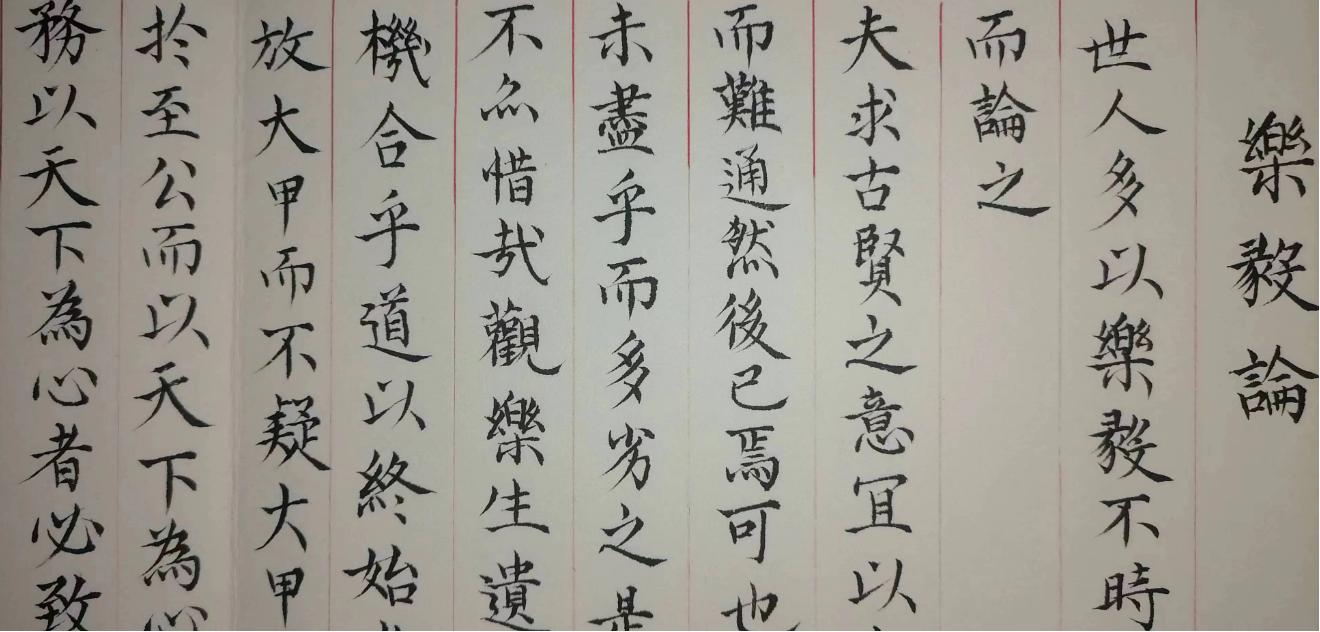 樂毅論
世人多以樂毅不時
而論之
夫求古賢之意宜以
而難通然後已焉可也
未盡乎而多劣之是
不亦惜哉觀樂生遺
機合乎道以終始
放大甲而不疑大甲
於至公而以天下為心
務以天下為心者必致